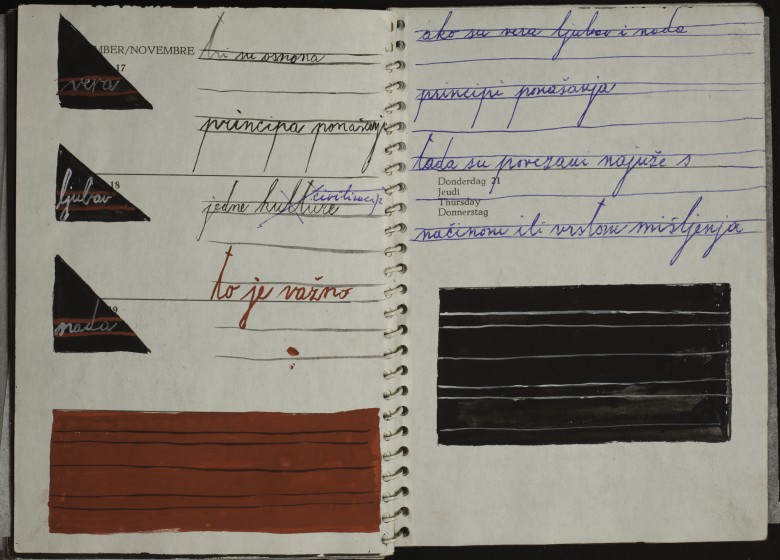 MBER/NOVEMBRE
17
vera
tri su osnovna
principa ponašanja
18
ljubav
jedne kulture civilizacije
19
nada
to je važno
ako su vera ljubav i nada
principi ponašanja
tada su povezani najuže s
Donderdag 21
Jeudi
Thursday
Donnerstag
načinom ili vrstom mišljenja